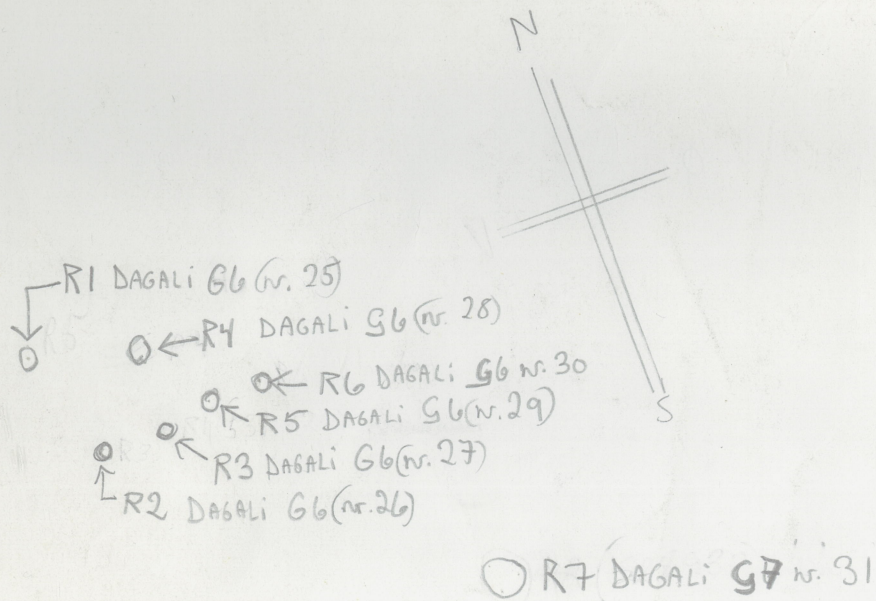 N
R1 DAGALI G6 (nr. 25)
R4 DAGALI G6 (nr. 28)
R6 DAGALI G6 nr. 30
R5 DAGALI G6 (nr. 29)
S
R3 DAGALI G6 (nr. 27)
R2 DAGALI G6 (nr. 26)
R7 DAGALI G7 nr. 31